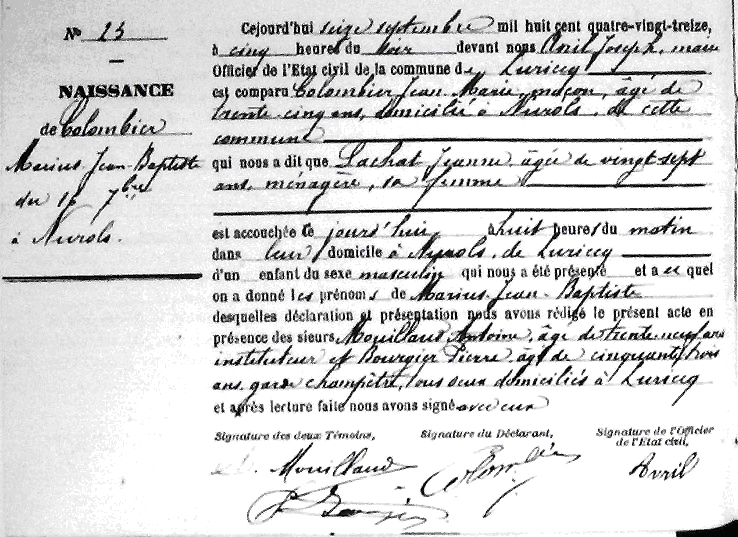 N° 23
NAISSANCE
de Colombier
Marius Jean-Baptiste
du 16 7bre
à Nurols.
Cejourd'hui seize septembre mil huit cent quatre-vingt-treize,
à cinq heures du soir devant nous Avril Joseph, maire
Officier de l'Etat civil de la commune de Luriecq
est comparu Colombier Jean Marie, maçon, âgé de
trente cinq ans, domicilié à Nurols, de cette
commune
qui nous a dit que Lachat Jeanne, âgée de vingt sept
ans, ménagère, sa femme
est accouchée ce jourd'hui à huit heures du matin
dans leur domicile à Nurols, de Luriecq
d'un enfant du sexe masculin qui nous a été présenté et auquel
on a donné les prénoms de Marius Jean-Baptiste
desquelles déclaration et présentation nous avons rédigé le présent acte en
présence des sieurs Mouillaud Antoine, âgé de trente neuf ans
instituteur et Bourgier Pierre âgé de cinquante trois
ans, garde champêtre, tous deux domiciliés à Luriecq
et après lecture faite nous avons signé avec eux
Signature des deux Témoins, Signature du Déclarant, Signature de l'Officier
de l'Etat civil,
Mouillaud Colombier Avril